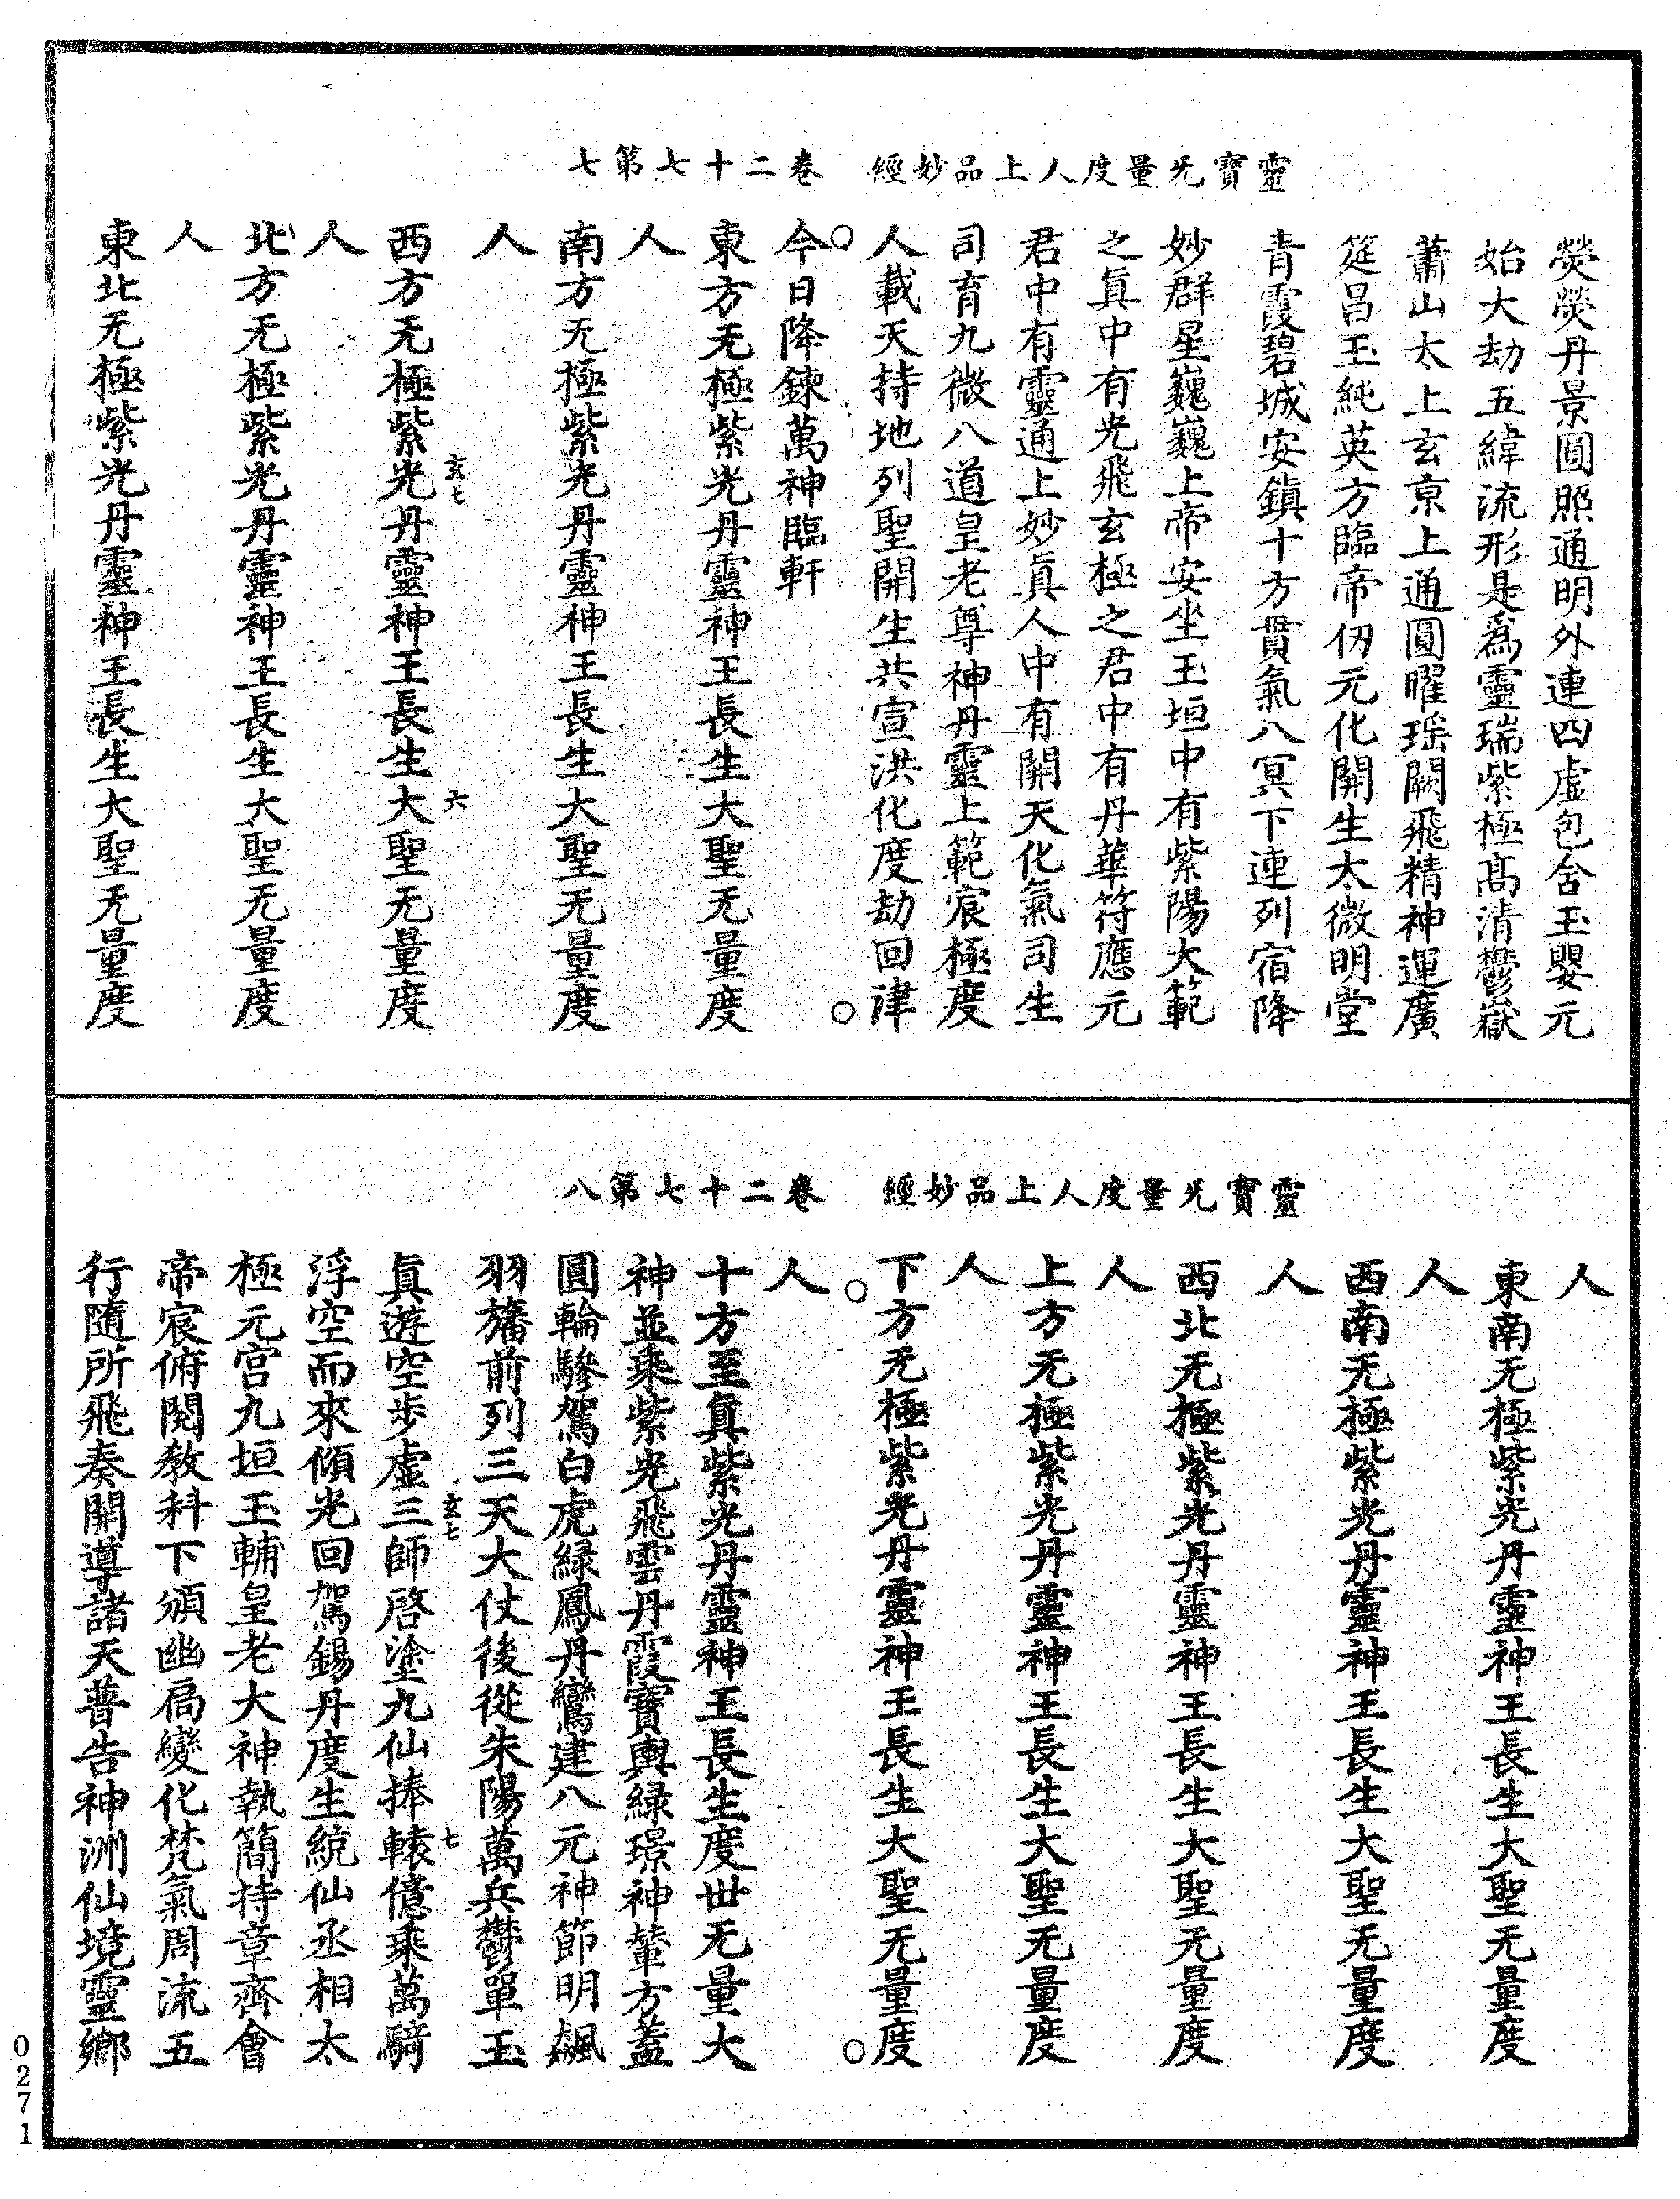 靈寶无量度人上品妙經　卷二十七第七
熒熒丹景圓照通明外連四虛包含玉嬰元
始大劫五緯流形是爲靈瑞紫極髙清鬱嶽
蕭山太上玄京上通圓曜瑶闕飛精神運廣
筵昌玉純英方臨帝仞元化開生太微明堂
青霞碧城安鎮十方貫氣八冥下連列宿降
妙群星巍巍上帝安坐玉垣中有紫陽大範
之眞中有光飛玄極之君中有丹華符應元
君中有靈通上妙眞人中有開天化氣司生
司育九微八道皇老尊神丹靈上範宸極度
人載天持地列聖開生共宣洪化度劫回津
○　○
今日降鍊萬神臨軒
東方无極紫光丹靈神王長生大聖无量度
人
南方无極紫光丹靈神王長生大聖无量度
人
玄七　六
西方无極紫光丹靈神王長生大聖无量度
人
北方无極紫光丹靈神王長生大聖无量度
人
東北无極紫光丹靈神王長生大聖无量度
靈寶无量度人上品妙經　卷二十七第八
人
東南无極紫光丹靈神王長生大聖无量度
人
西南无極紫光丹靈神王長生大聖无量度
人
西北无極紫光丹靈神王長生大聖无量度
人
上方无極紫光丹靈神王長生大聖无量度
人
下方无極紫光丹靈神王長生大聖无量度
○　○
人
十方至眞紫光丹靈神王長生度世无量大
神並乘紫光飛雲丹霞寶輿緑璟神輦方蓋
圓輪驂駕白虎緑鳳丹鸞建八元神節明飙
羽旛前列三天大仗後從朱陽萬兵鬱單玉
玄七　七
眞遊空步虛三師啓塗九仙捧轅億乘萬騎
浮空而來傾光回駕錫丹度生統仙丞相太
極元宫九垣玉輔皇老大神執簡持章齊會
帝宸俯閱教科下頒幽扃變化梵氣周流五
行隨所飛奏開導諸天普告神洲仙境靈鄉
0271